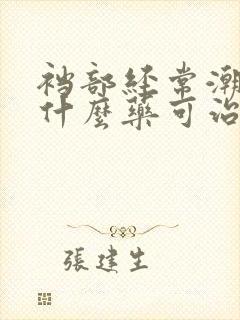 裆部经常潮
什麼藥可治
張建生